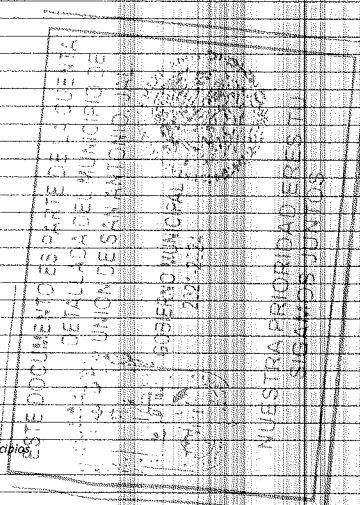 ESTE DOCUMENTO ES PARTE DE LA CUENTA
DETALLADA DEL MUNICIPIO DE
UNION DE SAN ANTONIO, JAL.
GOBIERNO MUNICIPAL
NUESTRA PRIORIDAD ERES TU
SIGAMOS JUNTOS
cipios